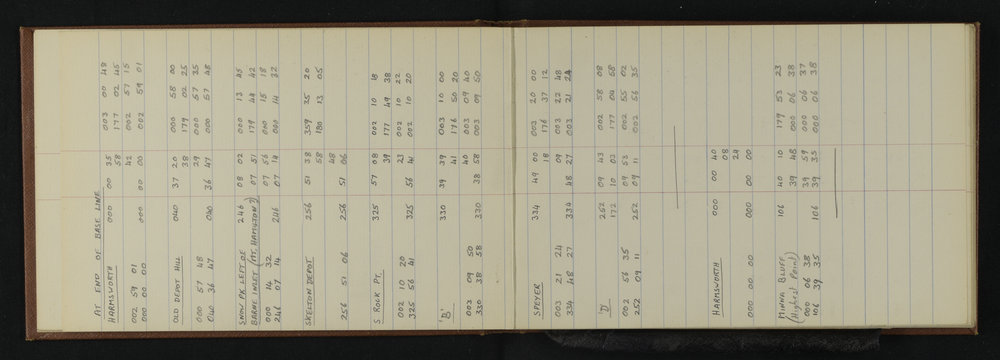 AT END OF BASE LINE
HARMSWORTH 000 00 35 003 00 48
58 177 02 45
42 002 57 15
002 59 01 000 00 00 002 59 01
000 00 00
OLD DEPOT HILL 040 37 20 000 58 00
38 179 02 25
000 57 48 29 000 57 35
040 36 47 040 36 47 000 57 48
SNOW PK LEFT OF 246 08 02 000 13 45
BARNE INLET (MT. HAMILTON?) 07 51 179 44 42
000 14 32 07 56 000 15 18
246 07 14 246 07 14 000 14 32
SKELTON DEPOT 256 51 38 359 35 20
58 180 13 05
48
256 51 06 256 51 06
S ROCK PT. 325 57 08 002 10 18
39 177 49 38
002 10 20 23 002 10 22
325 56 41 325 56 41 002 10 20
'b' 330 39 39 003 10 00
41 176 50 20
003 09 50 40 003 09 40
330 38 58 330 38 58 003 09 50
SPEYER 334 49 00 003 20 00
18 176 37 12
003 21 24 09 003 22 48
334 48 27 334 48 27 003 21 24
'D' 252 09 43 002 58 08
172 10 03 177 04 58
002 56 35 09 53 002 55 02
252 09 11 252 09 11 002 56 35
HARMSWORTH 000 00 40
08
24
000 00 00 000 00 00
MINNA BLUFF 106 40 10 179 53 23
(Highest Point) 39 48 000 06 38
000 06 38 39 59 000 06 37
106 39 35 106 39 35 000 06 38